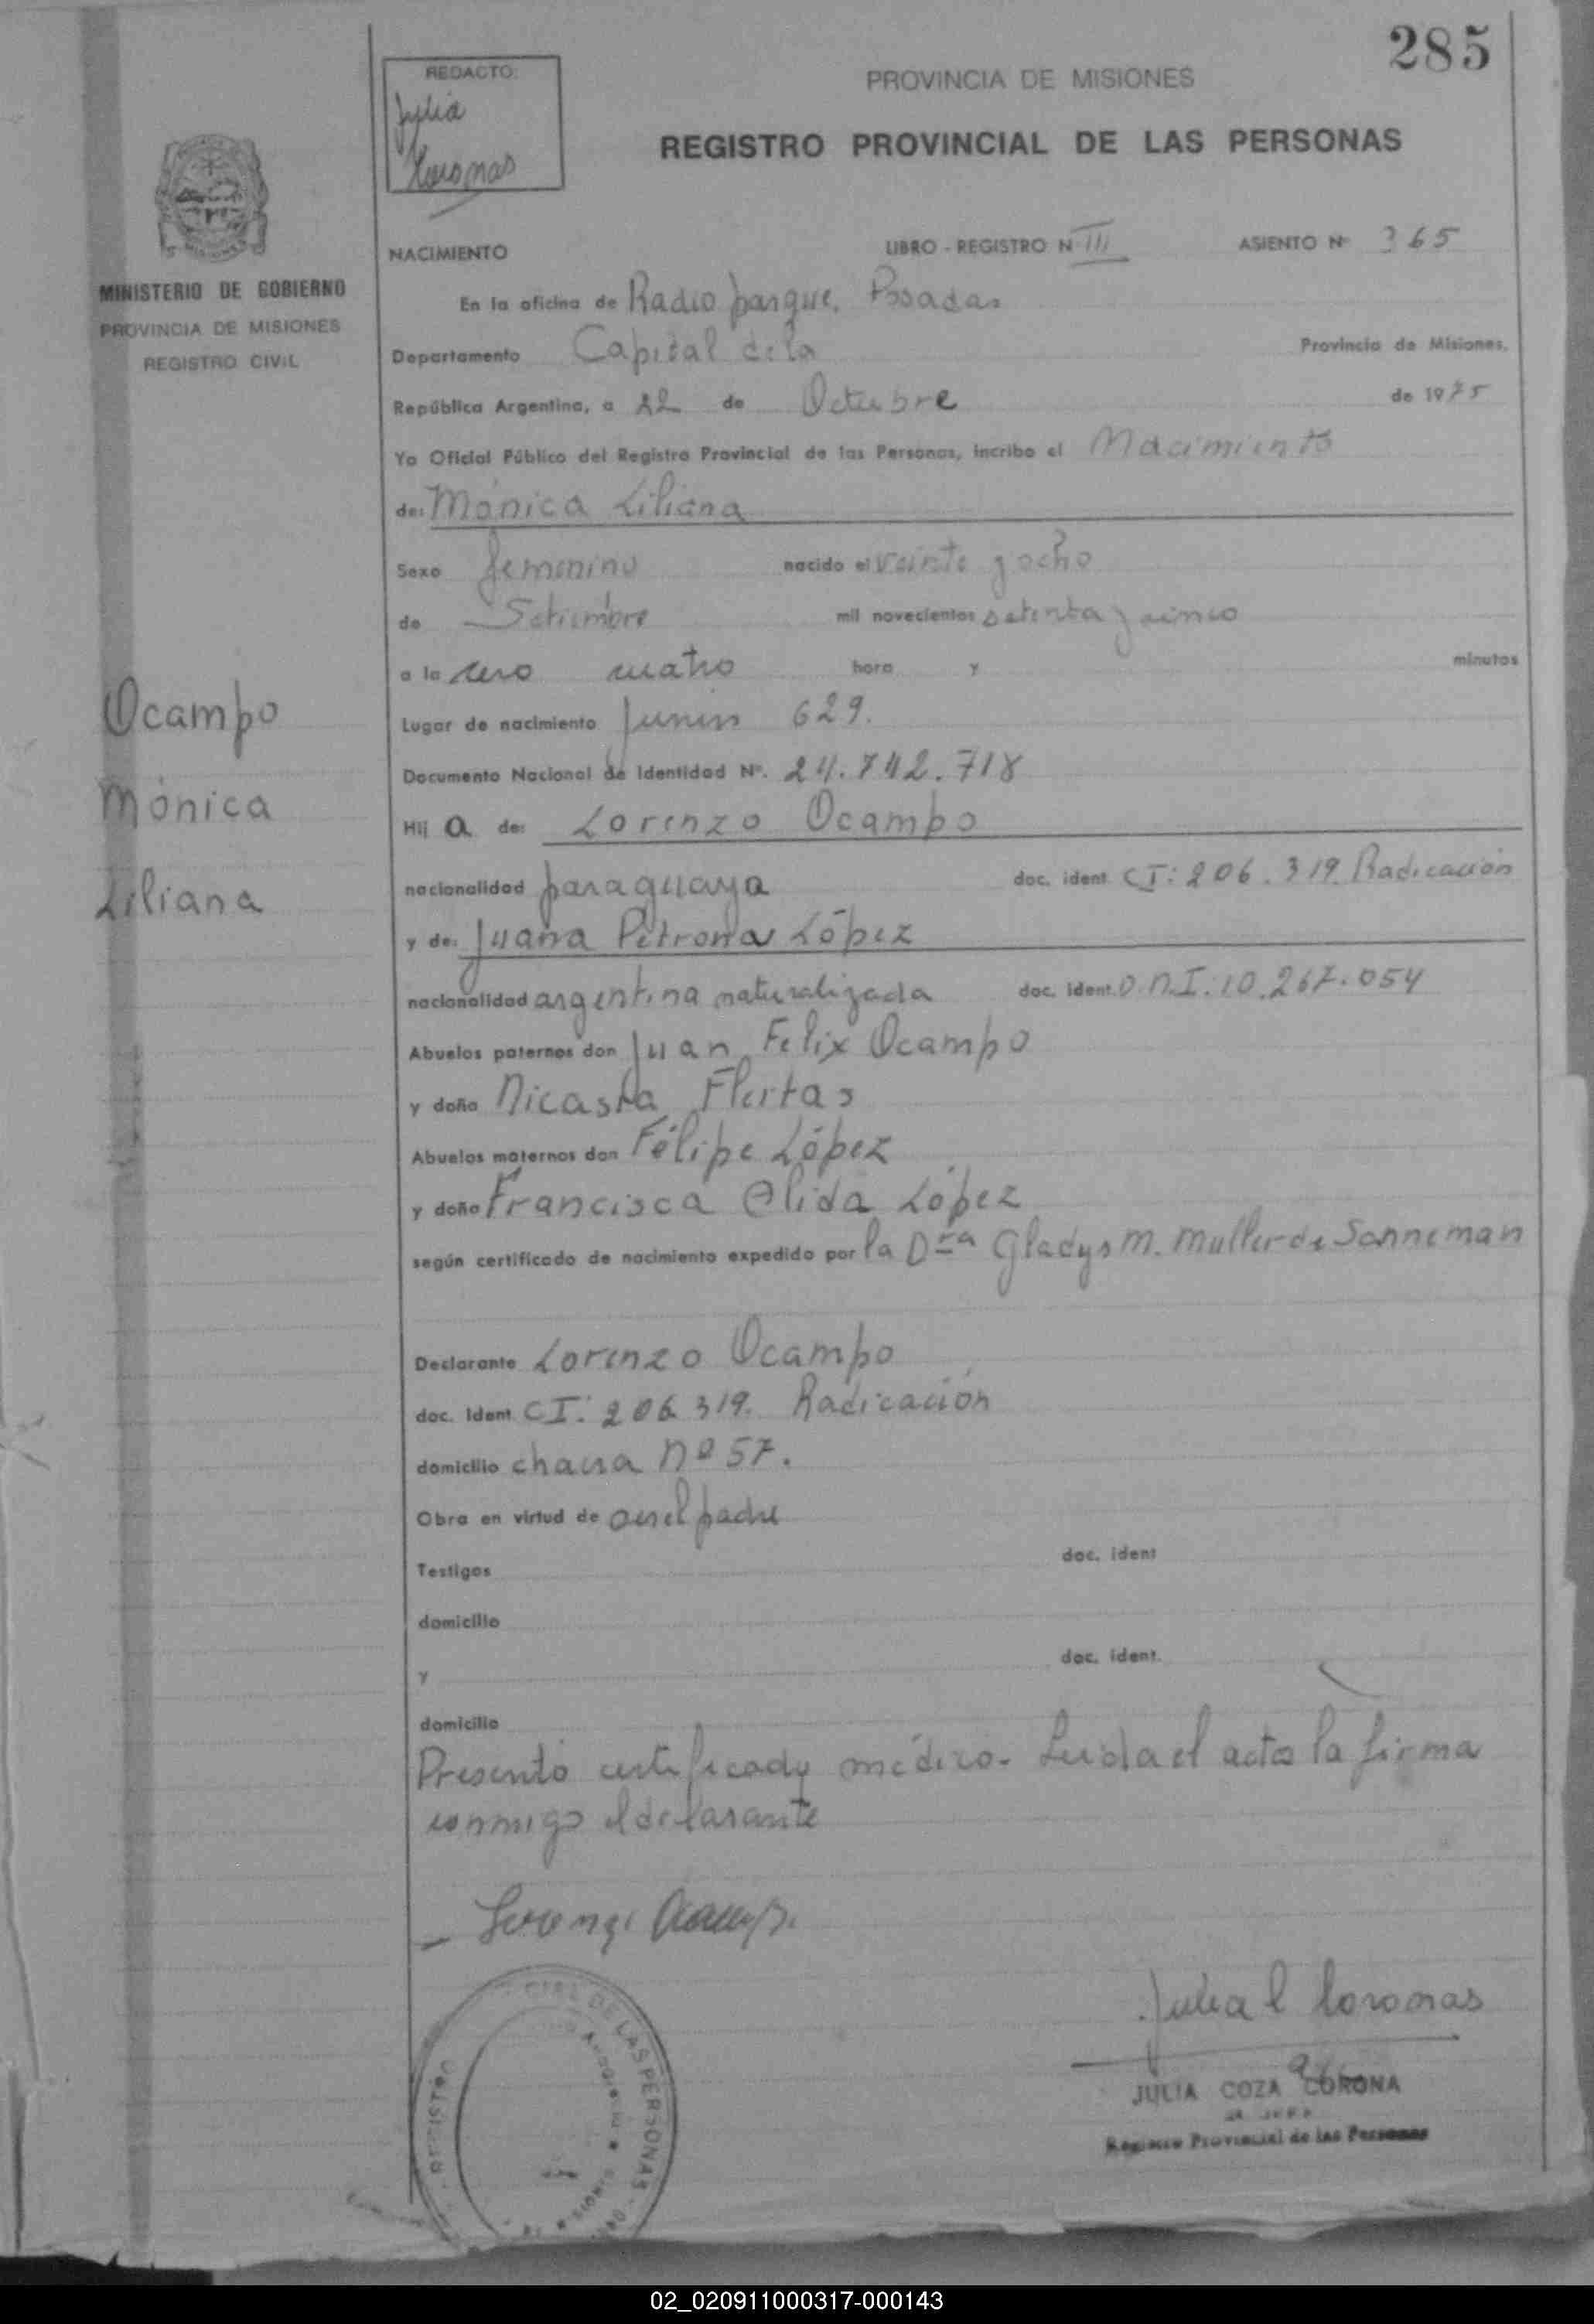 285
REDACTO:
Julia
Coronas
PROVINCIA DE MISIONES
REGISTRO PROVINCIAL DE LAS PERSONAS
MINISTERIO DE GOBIERNO
PROVINCIA DE MISIONES
REGISTRO CIVIL
NACIMIENTO LIBRO - REGISTRO N III ASIENTO Nº 365
En la oficina de Radio parque. Posadas
Departamento Capital de la Provincia de Misiones.
República Argentina, a 22 de Octubre de 1975
Yo Oficial Público del Registro Provincial de las Personas, incribo el Nacimiento
de: Mónica Liliana
Sexo femenino nacido el veinte y ocho
de Setiembre mil novecientos setenta y cinco
a la cero cuatro hora y minutos
Lugar de nacimiento Junin 629.
Documento Nacional de Identidad Nº. 24.742.718
Hij a de: Lorenzo Ocampo
nacionalidad paraguaya doc. ident. CI: 206.319. Radicación
y de: Juana Petrona López
nacionalidad argentina naturalizada doc. ident. D.N.I: 10.267.054
Abuelos paternos don Juan Felix Ocampo
y doña Nicasia
Abuelos maternos don Felipe López
y doña Francisca Elida López
según certificado de nacimiento expedido por la Dra Gladys M. Muller de Sanneman
Ocampo
Mónica
Liliana
Declarante Lorenzo Ocampo
doc. Ident. CI: 206.319. Radicación
domicilio chacra Nº 57.
Obra en virtud de ser el padre
Testigos doc. ident
domicilio
y doc. ident.
domicilio
Presentó certificado médico. Leida el acta la firma
conmigo el declarante
Lorenzo Ocampo
CIAL DE LAS PERSONAS
Julia C Coronas
JULIA COZA CORONA
Registro Provincial de las Personas
02_020911000317-000143